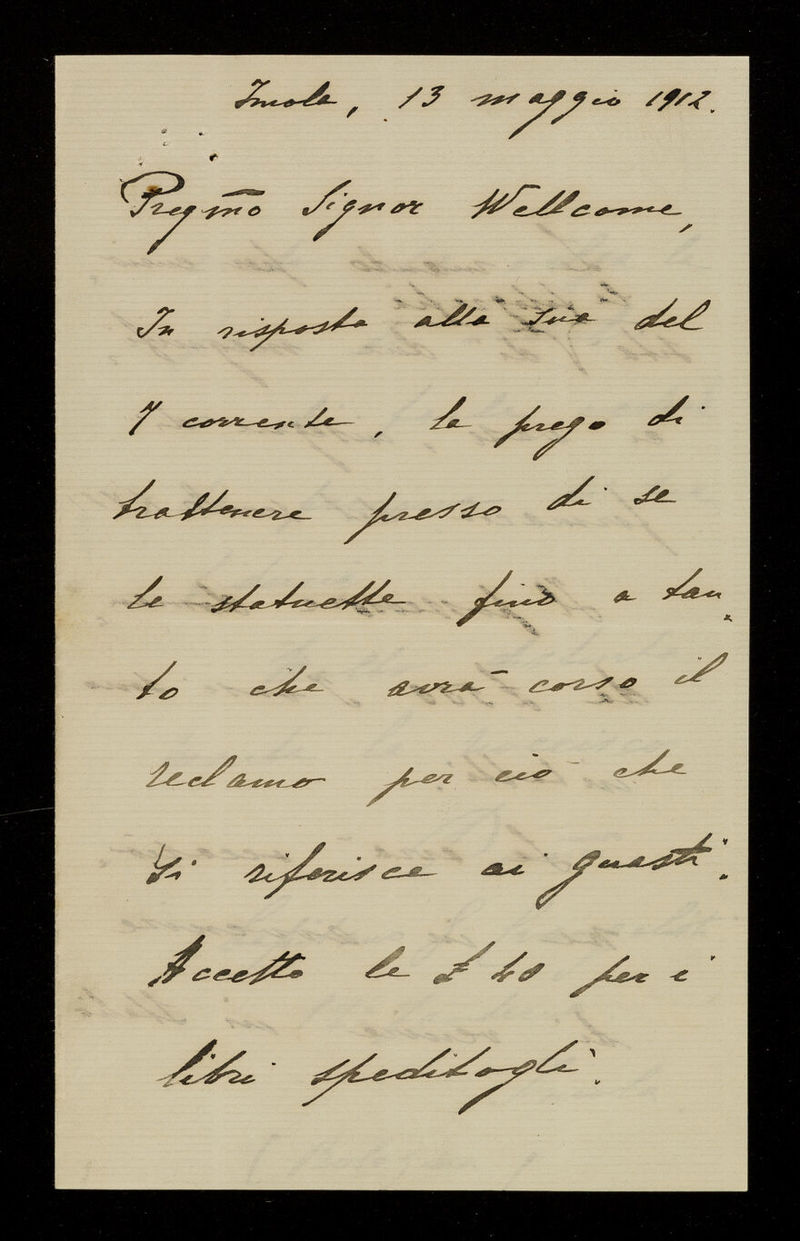 Imola, 13 maggio 1912.
Pregmo Signor Wellcome,
In risposta alla sua del
7 corrente, la prego di
trattenere presso di se
le statuette fino a tan„
to che avrà corso il
reclamo per ciò che
si riferisce ai guasti.
Accetto le £ 40 per i
libri speditogli.